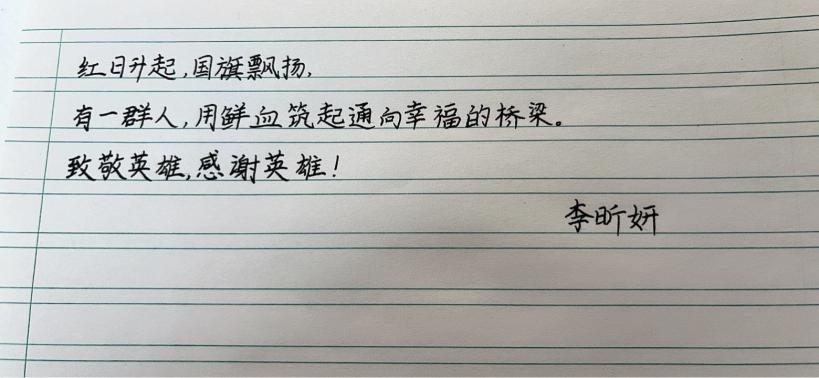 红日升起,国旗飘扬,
有一群人,用鲜血筑起通向幸福的桥梁。
致敬英雄,感谢英雄!
李昕妍